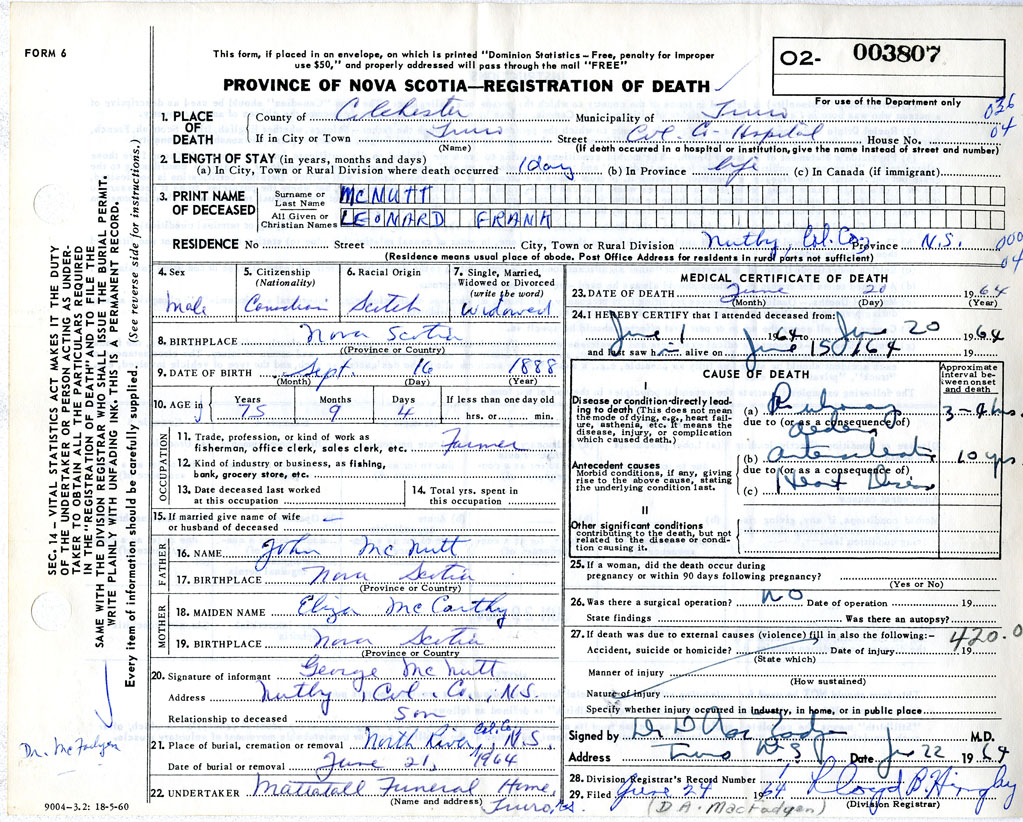 FORM 6
This form, if placed in an envelope, on which is printed "Dominion Statistics – Free, penalty for improper
use $50," and properly addressed will pass through the mail "FREE"
O2- 003807
For use of the Department only
PROVINCE OF NOVA SCOTIA—REGISTRATION OF DEATH
036
04
1. PLACE OF DEATH
County of Colchester Municipality of Truro
If in City or Town Truro Street Col. Co. Hospital House No.
(Name) (If death occurred in a hospital or institution, give the name instead of street and number)
2. LENGTH OF STAY (in years, months and days)
(a) In City, Town or Rural Division where death occurred 1 day (b) In Province life (c) In Canada (if immigrant)
3. PRINT NAME OF DECEASED
Surname or Last Name McNUTT
All Given or Christian Names LEONARD FRANK
RESIDENCE No Street City, Town or Rural Division Nutby, Col. Co., Province N.S.
000
04
(Residence means usual place of abode. Post Office Address for residents in rural parts not sufficient)
4. Sex
Male
5. Citizenship (Nationality)
Canadian
6. Racial Origin
Scotch
7. Single, Married, Widowed or Divorced (write the word)
Widowed
8. BIRTHPLACE Nova Scotia
((Province or Country)
9. DATE OF BIRTH Sept. 16 1888
(Month) (Day) (Year)
10. AGE in Years Months Days If less than one day old
75 9 4 hrs. or min.
OCCUPATION
11. Trade, profession, or kind of work as
fisherman, office clerk, sales clerk, etc. Farmer
12. Kind of industry or business, as fishing,
bank, grocery store, etc.
13. Date deceased last worked
at this occupation
14. Total yrs. spent in
this occupation
15. If married give name of wife
or husband of deceased –
FATHER
16. NAME John McNutt
17. BIRTHPLACE Nova Scotia
(Province or Country)
MOTHER
18. MAIDEN NAME Eliza McCarthy
19. BIRTHPLACE Nova Scotia
(Province or Country
20. Signature of informant George McNutt
Address Nutby, Col. Co., N.S.
Relationship to deceased Son
21. Place of burial, cremation or removal North River, Col. Co., N.S.
Date of burial or removal June 21, 1964
22. UNDERTAKER Mattatall Funeral Home,
(Name and address) Truro, N.S.
MEDICAL CERTIFICATE OF DEATH
23. DATE OF DEATH June 20 1964
(Month) (Day) (Year)
24. I HEREBY CERTIFY that I attended deceased from:
June 1 1964 to June 20 1964
and last saw him alive on June 15 1964 19
CAUSE OF DEATH
Approximate interval between onset and death
I
Disease or condition directly leading to death (This does not mean the mode of dying, e.g., heart failure, asthenia, etc. It means the disease, injury, or complication which caused death.)
(a) Pulmonary 3-4 hrs.
due to (or as a consequence of)
edema
Antecedent causes
Morbid conditions, if any, giving rise to the above cause, stating the underlying condition last.
(b) Arteriosclerotic 10 yrs.
due to (or as a consequence of)
(c) Heart Disease
II
Other significant conditions
contributing to the death, but not related to the disease or condition causing it.
25. If a woman, did the death occur during
pregnancy or within 90 days following pregnancy?
(Yes or No)
26. Was there a surgical operation? NO Date of operation 19
State findings Was there an autopsy?
27. If death was due to external causes (violence) fill in also the following:–
420.0
Accident, suicide or homicide? Date of injury 19
(State which)
Manner of injury
(How sustained)
Nature of injury
Specify whether injury occurred in Industry, in home, or in public place
Signed by Dr D A MacFadyen M.D.
Address Truro N.S Date June 22 1964
28. Division Registrar's Record Number
29. Filed June 24 1964 Lloyd B.
(D.A. MacFadyen) (Division Registrar)
SEC. 14 – VITAL STATISTICS ACT MAKES IT THE DUTY
OF THE UNDERTAKER OR PERSON ACTING AS UNDER-
TAKER TO OBTAIN ALL THE PARTICULARS REQUIRED
IN THE "REGISTRATION OF DEATH" AND TO FILE THE
SAME WITH THE DIVISION REGISTRAR WHO SHALL ISSUE THE BURIAL PERMIT.
WRITE PLAINLY WITH UNFADING INK. THIS IS A PERMANENT RECORD.
Every item of information should be carefully supplied. (See reverse side for instructions.)
Dr. McFadyen
9004–3.2: 18-5-60